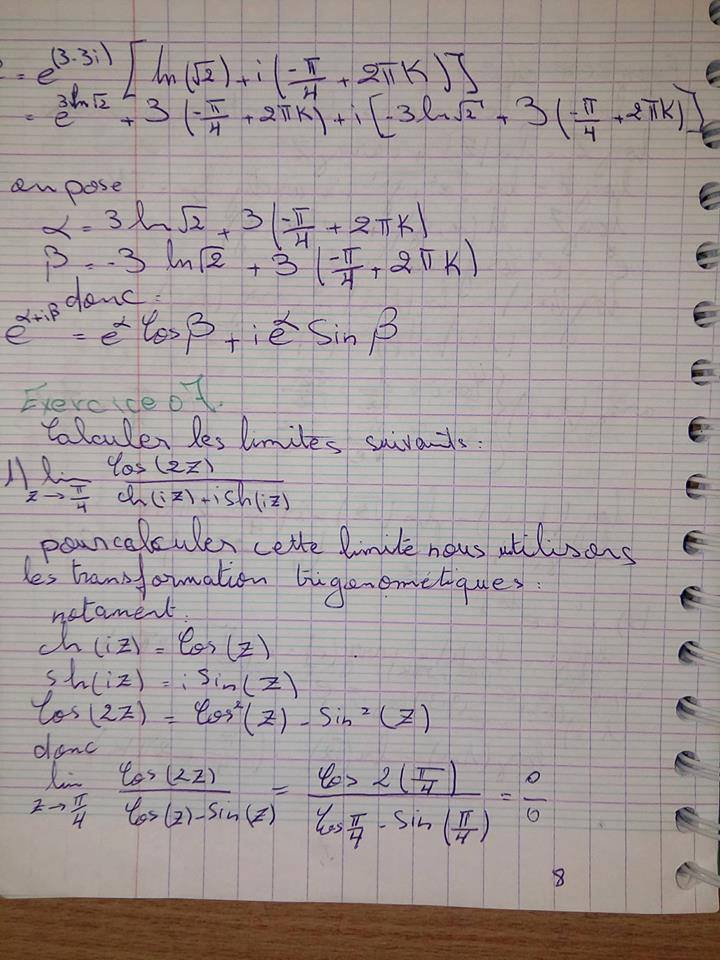 = e^(3-3i) [ln(√2) + i(-π/4 + 2πK)]
= e^3ln√2 + 3(-π/4 + 2πK) + i[-3ln√2 + 3(-π/4 + 2πK)]
on pose
α = 3ln√2 + 3(-π/4 + 2πK)
β = -3 ln√2 + 3(-π/4 + 2πK)
donc:
e^α+iβ = e^α Cos β + i e^α Sin β
Exercice 07.
Calculer les limites suivants:
1) lim z→π/4 Cos(2z) / ch(iz)+ish(iz)
pour calculer cette limite nous utilisons
les transformation trigonométiques:
notament:
ch(iz) = Cos(z)
sh(iz) = i Sin(z)
Cos(2z) = Cos²(z) - Sin²(z)
donc
lim z→π/4 Cos(2z) / Cos(z)-Sin(z) = Cos 2(π/4) / Cos π/4 - Sin(π/4) = 0/0
8